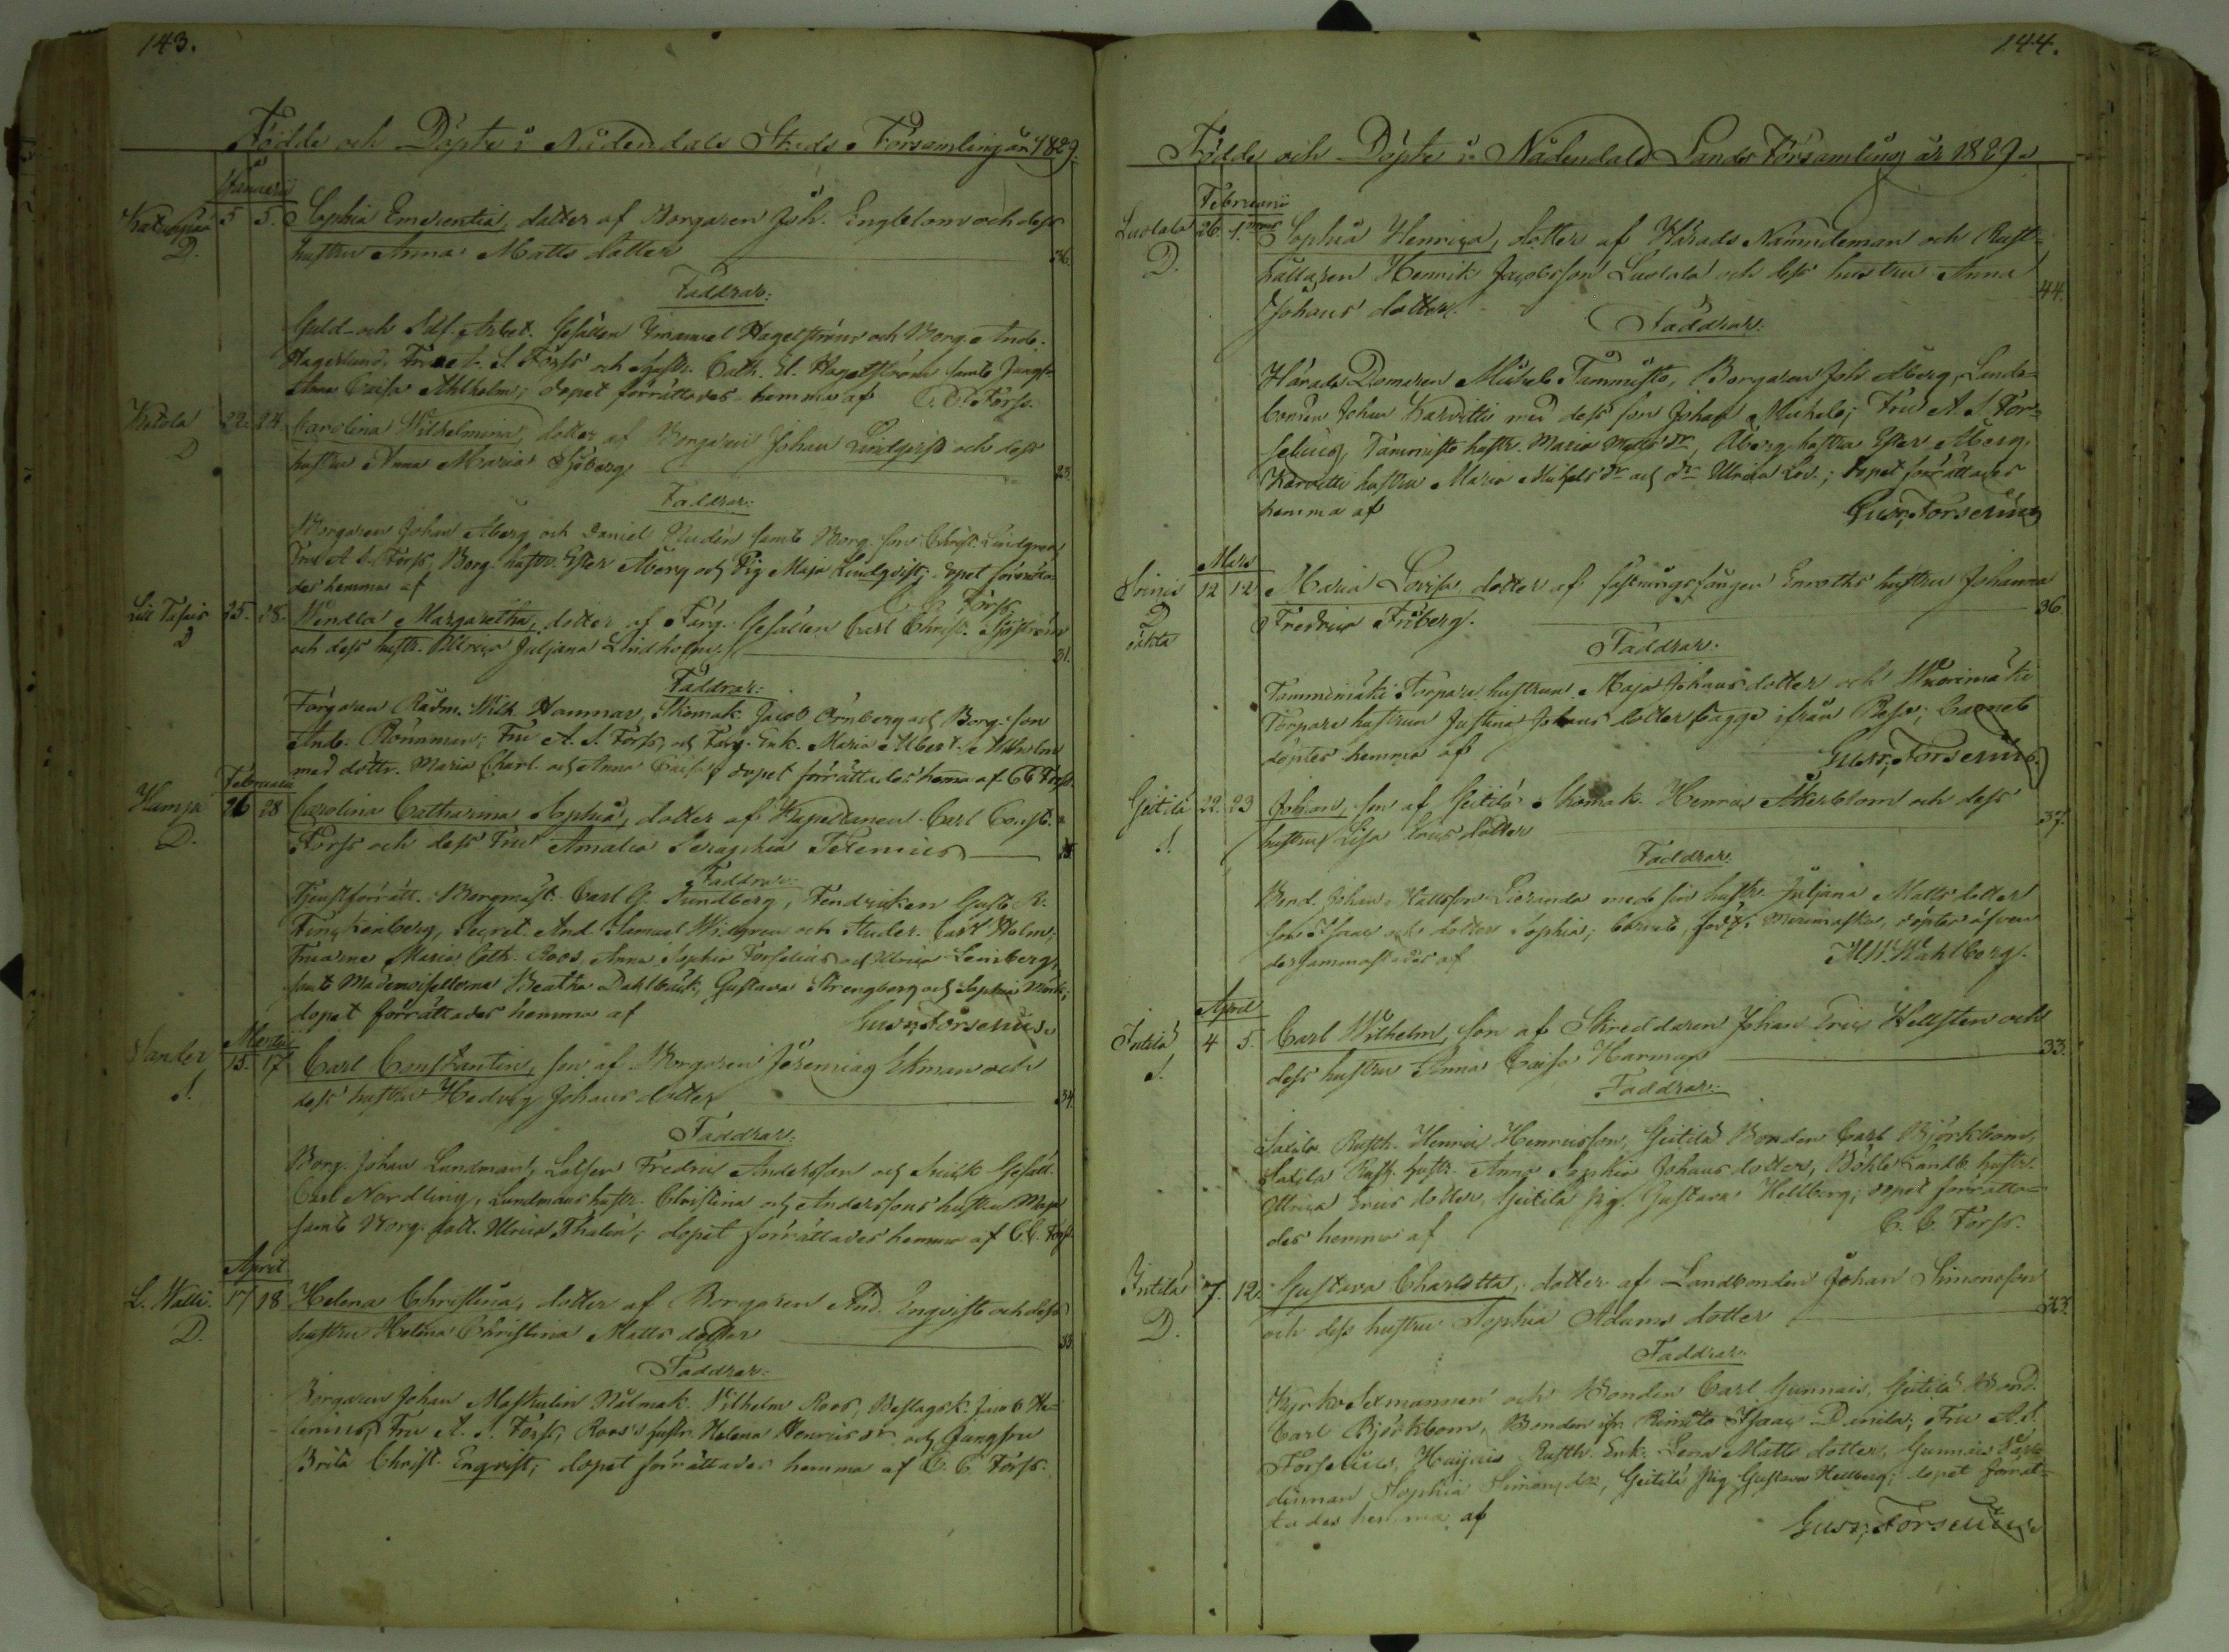 143.
Födde och Döpte i Nådendals Stads Församling år 1829.
Januarii
5 5. Sophia Emerentia, dotter af Borgaren Joh. Engblom och dess
D. hustru Anna Matts dotter 36.
Faddrar:
Guld- och Silf. Arbet. Gesällen Emanuel Hagelström och Borg. Andr.
Hagerlund, Fru A. S. Forss och Hustr. Cath. El. Hagelström samt Jungf.
Anna Caisa Ahlholm; dopet förrättades hemma af C. C. Forss.
Katola 22. 24. Carolina Wilhelmina, dotter af Borgaren Johan Lindqvist och dess
D hustru Anna Maria Sjöberg 23.
Faddrar:
Borgaren Johan Åberg och Daniel samt Borg. son Christ. Lindgren
Fru A. S. Forss, Borg. hustr. Ester Åberg och Pig. Maja Lindqvist; dopet förrätta-
des hemma af C. C. Forss.
Lill 25. 28. Wendla Margaretha, dotter af Färg. Gesällen Carl Christ.
D och dess hustr. Ulrica Juljana Lindholm. 31.
Faddrar:
Färgaren Rådm. Wilh. Hammar, Skomak. Jacob Örnberg och Borg. son
Andr. Rönnman; Fru A. S. Forss, och Färg. Enk. Maria
med döttr. Maria Charl. och Anna Caisa; dopet förrättades hemma af C C Forss.
Februarii
Humpa 26 28 Carolina Catharina Sophia, dotter af Kapellanen Carl Const.
D. Forss och dess Fru Amalia Seraphia Telenius
Faddrar:
Tjenstförrätt. Borgmäst. Carl G. Sundberg, Fendricken Gust. R.
Finckenberg, Secret. And. Samuel Widgren och Studer. Carl Holm;
Fruarne Maria Cath. Roos, Anna Sophia Forselius och Ulrica Leinberg,
samt Mademoisellerna Beatha Dahlbäck, Gustava Strengberg och Sophia
dopet förrättades hemma af Gust; Forselius.
Martii
Sander 15. 17 Carl Constantin, son af Borgaren Jeremias Ekman och
S. dess hustru Hedvig Johans dotter 34.
Faddrar:
Borg. Johan Lundman, Lotsen Fredric Andersson och Snick Gesäll.
Carl Nordling, Lundmans hustr. Christina och Anderssons hustru Maja
samt Borg. dott. Ulrica Thalén; dopet förrättades hemma af C. C. Forss.
April
L. 17 18 Helena Christina, dotter af Borgaren And. Enqvist och dess
D. hustru Helena Christina Matts dotter 33.
Faddrar:
Borgaren Johan Maskulin Nålmak. Vilhelm Roos, Beslagsk. Jacob He-
lenius; Fru A. S. Forss, Roos's hustr. Helena Henrics dr och Jungfru
Brita Christ. Enqvist; dopet förrättades hemma af C. C. Forss.
144.
Födde och Döpte i Nådendals Lands Församling år 1829.
Februarii
Luolala 26. 1. Sophia Henrica, dotter af Härads Nämndeman och Rust-
D. hållaren Henrik Jacobsson Luolala och dess hustru Anna
Johans dotter. 44.
Faddrar:
Härads Domaren Michel Tammisto, Borgaren Joh. Åberg, Land-
bonden Johan Karvetti med dess son Johan Michels; Fru A. S. For-
selius, Tammisto hustr. Maria Matts dr, Åbergs hustru Ester Åberg,
Karvetti hustru Maria Michels dr och dr Ulrica Lov.; dopet förrättades
hemma af Gust; Forselius
Mars
12 12 Maria Lovisa, dotter af fästningsfången Enroths hustru Johanna
D Fredrica Friberg. 36.
oäkta
Faddrar:
Tamminäki Torpare hustrun Maja Johans dotter och Wuorimäki
Torpare hustrun Justina Johans dotter bägge ifrån Reso; barnet
döptes hemma af Gust; Forselius.
Geitilä 22. 23 Johan, son af Geitilä Skomak. Henric Åkerblom och dess
S. hustru Lisa Erics dotter 37.
Faddrar:
Bond. Johan Mattsson Pieranda med sin hustr. Juljana Matts dotter
son Isaac och dotter Sophia; barnet, född i Merimasku, döptes äfven
dersammastädes af M. W. Wahlberg.
April
4 5. Carl Wilhelm, son af Skreddaren Johan Eric Hellsten och
S. dess hustru Anna Caisa Harman 33.
Faddrar:
Rusth. Henric Henricsson, Geitilä Bonden Carl Björkbom,
Rusth. hustr. Anna Sophia Johans dotter, Böhle Landb. hustr.
Ulrica Erics dotter, Geitilä Pig. Gustava Hellberg; dopet förrätta-
des hemma af C. C. Forss.
7. 12. Gustava Charlotta, dotter af Landbonden Johan Simonsson
D. och dess hustru Sophia Adams dotter 43.
Faddrar:
Kyrko Sexmannen och Bonden Carl Gunnais, Geitilä Bond.
Carl Björkbom, Bonden ifr. Rimito Isaac Danila; Fru A. S.
Forselius, Haijais Rusth. Enk. Lena Matts dotter, Gunnais
Sophia Simons dr, Geitilä Pig. Gustava Hellberg; dopet förrät-
tades hemma af Gust; Forselius